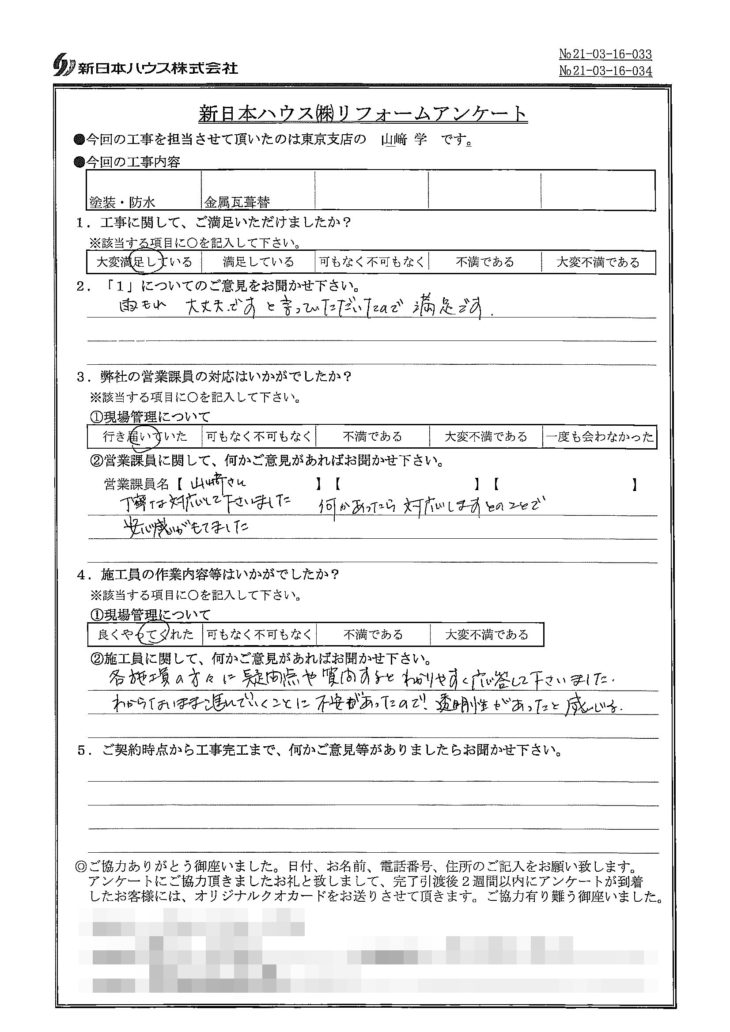 新日本ハウス株式会社
№21-03-16-033
№21-03-16-034
新日本ハウス㈱リフォームアンケート
●今回の工事を担当させて頂いたのは東京支店の 山﨑 学 です。
●今回の工事内容
塗装・防水 金属瓦葺替
1．工事に関して、ご満足いただけましたか？
※該当する項目に○を記入して下さい。
大変満足している 満足している 可もなく不可もなく 不満である 大変不満である
2．「1」についてのご意見をお聞かせ下さい。
雨もれ 大丈夫ですと言っていただいたので 満足です.
3．弊社の営業課員の対応はいかがでしたか？
※該当する項目に○を記入して下さい。
①現場管理について
行き届いていた 可もなく不可もなく 不満である 大変不満である 一度も会わなかった
②営業課員に関して、何かご意見があればお聞かせ下さい。
営業課員名【 山﨑さん 】【 】【 】
丁寧な対応して下さいました 何かあったら 対応しますとのことで
安心感がもてました
4．施工員の作業内容等はいかがでしたか？
※該当する項目に○を記入して下さい。
①現場管理について
良くやってくれた 可もなく不可もなく 不満である 大変不満である
②施工員に関して、何かご意見があればお聞かせ下さい。
各施工員の方々に疑問点や質問するとわかりやすく応答して下さいました.
わからないまま進んでいくことに不安があったので、透明性があったと感じる.
5．ご契約時点から工事完工まで、何かご意見等がありましたらお聞かせ下さい。
◎ご協力ありがとう御座いました。日付、お名前、電話番号、住所のご記入をお願い致します。
アンケートにご協力頂きましたお礼と致しまして、完了引渡後２週間以内にアンケートが到着
したお客様には、オリジナルクオカードをお送りさせて頂きます。ご協力有り難う御座いました。